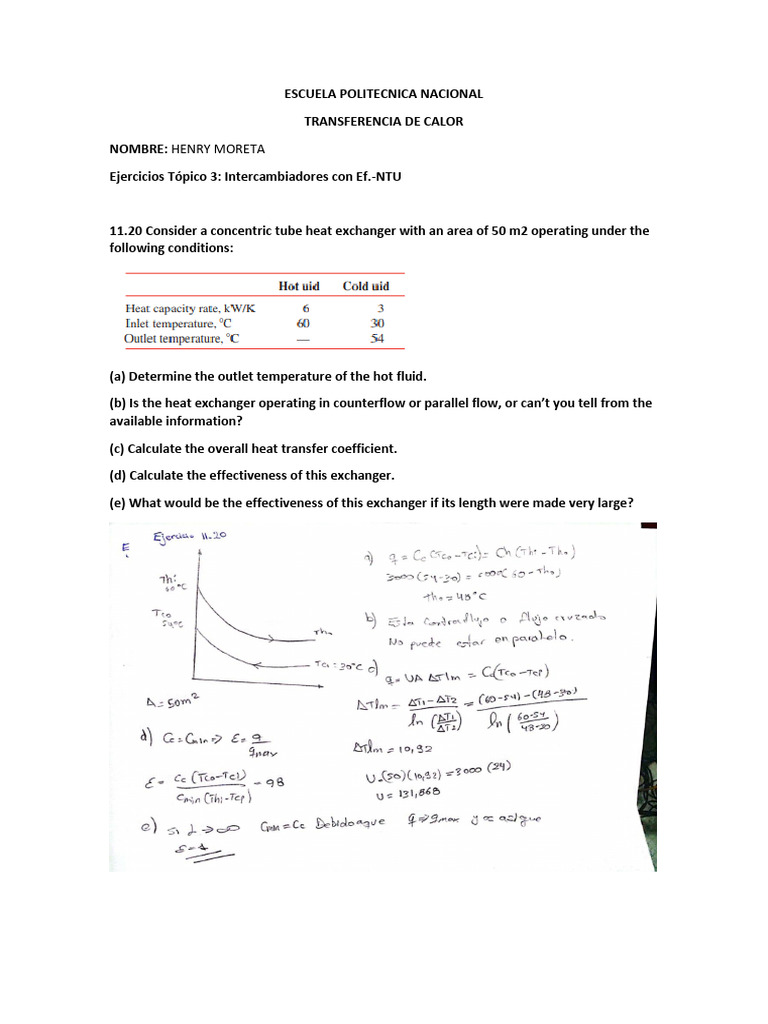 ESCUELA POLITECNICA NACIONAL
TRANSFERENCIA DE CALOR
NOMBRE: HENRY MORETA
Ejercicios Tópico 3: Intercambiadores con Ef.-NTU
11.20 Consider a concentric tube heat exchanger with an area of 50 m2 operating under the
following conditions:
Hot uid Cold uid
Heat capacity rate, kW/K 6 3
Inlet temperature, °C 60 30
Outlet temperature, °C — 54
(a) Determine the outlet temperature of the hot fluid.
(b) Is the heat exchanger operating in counterflow or parallel flow, or can’t you tell from the
available information?
(c) Calculate the overall heat transfer coefficient.
(d) Calculate the effectiveness of this exchanger.
(e) What would be the effectiveness of this exchanger if its length were made very large?
E Ejercicio 11.20
Thi
60°C
Tco
54°C
Tho
Tci = 30°C
A = 50m²
a) q = Cc (Tco - Tci) = Ch (Thi - Tho)
3000 (54-30) = 6000( 60 - Tho)
Tho = 48°C
b) Esta contraflujo o flujo cruzado
No puede estar en paralelo.
c)
q = UA ΔTlm = Cc(Tco - Tcp)
ΔTlm = ΔT1 - ΔT2 / ln (ΔT1/ΔT2) = (60-54) - (48-30) / ln (60-54/48-30)
ΔTlm = 10,92
U.(50)(10,92) = 3000 (24)
U = 131,868
d) Cc = Cmin => E = q / qmax
E = Cc (Tco-Tci) / Cmin (Thi-Tcp) - 98
e) si L → ∞ Cmin = Cc Debido a que q → qmax y